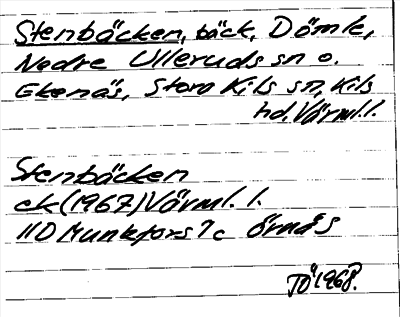 Stenbäcken, bäck, Dömle,
Nedre Ulleruds sn o.
Ekenäs, Stora Kils sn, Kils
hd, Värml. l.
Stenbäcken
ek (1967) Värml. l.
11D Munkfors 7c
TÖ 1968.